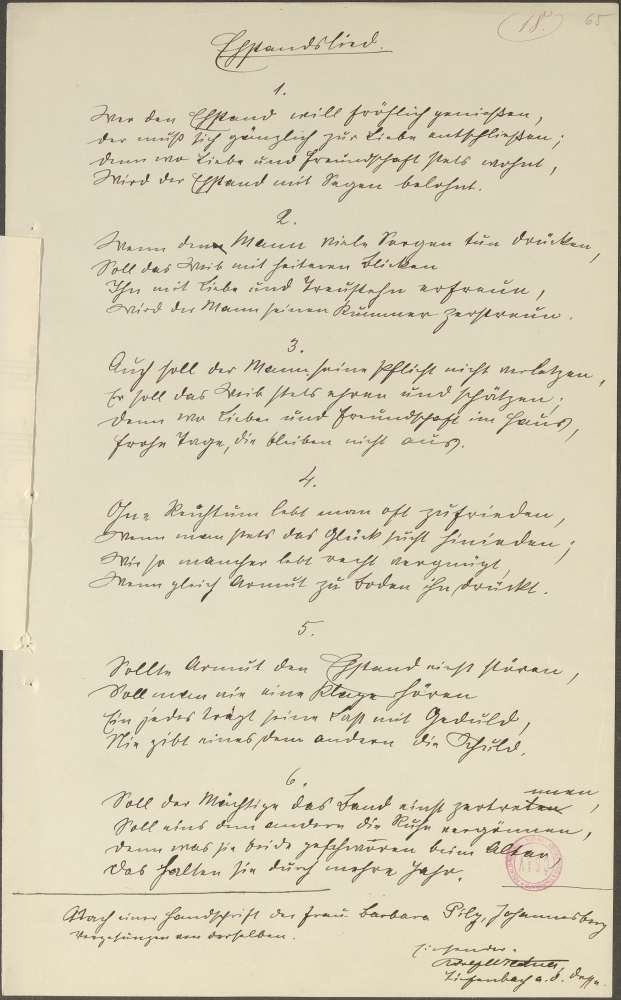 18. 65
Ehstandslied.
1.
Wer den Ehstand will fröhlich genießen,
der muß sich gänzlich zur Liebe entschließen;
denn wo Liebe und Freundschaft stets wohnt,
Wird der Ehstand mit Segen belohnt.
2.
Wenn den Mann viele Sorgen tun drücken,
Soll das Weib mit heiteren Blicken
Ihn mit Liebe und Treustehn erfreun,
Wird der Mann seinen Kummer zerstreun.
3.
Auch soll der Mann seine Pflicht nicht verletzen,
Er soll das Weib stets ehren und schätzen;
denn wo Liebe und Freundschaft im Haus,
frohe Tage, die bleiben nicht aus.
4.
Ohne Reichtum lebt man oft zufrieden,
Wenn man stets das Glück sucht hinieden;
Wie so mancher lebt recht vergnügt,
Wenn gleich Armut zu Boden ihn drückt.
5.
Sollte Armut den Ehstand nicht stören,
Soll man nie eine Klage hören
Ein jedes trägt seine Last mit Geduld,
Nie gibt eines dem andern die Schuld.
6.
Soll der Mächtige das Band einst zertrennen,
Soll eins dem andern die Ruhe vergönnen,
denn was sie beide geschworen beim Altar
das halten sie durch mehre Jahr.
Nach einer Handschrift der Frau Barbara Pilz, Johannesberg
Vorgesungen von derselben.
Einsender: